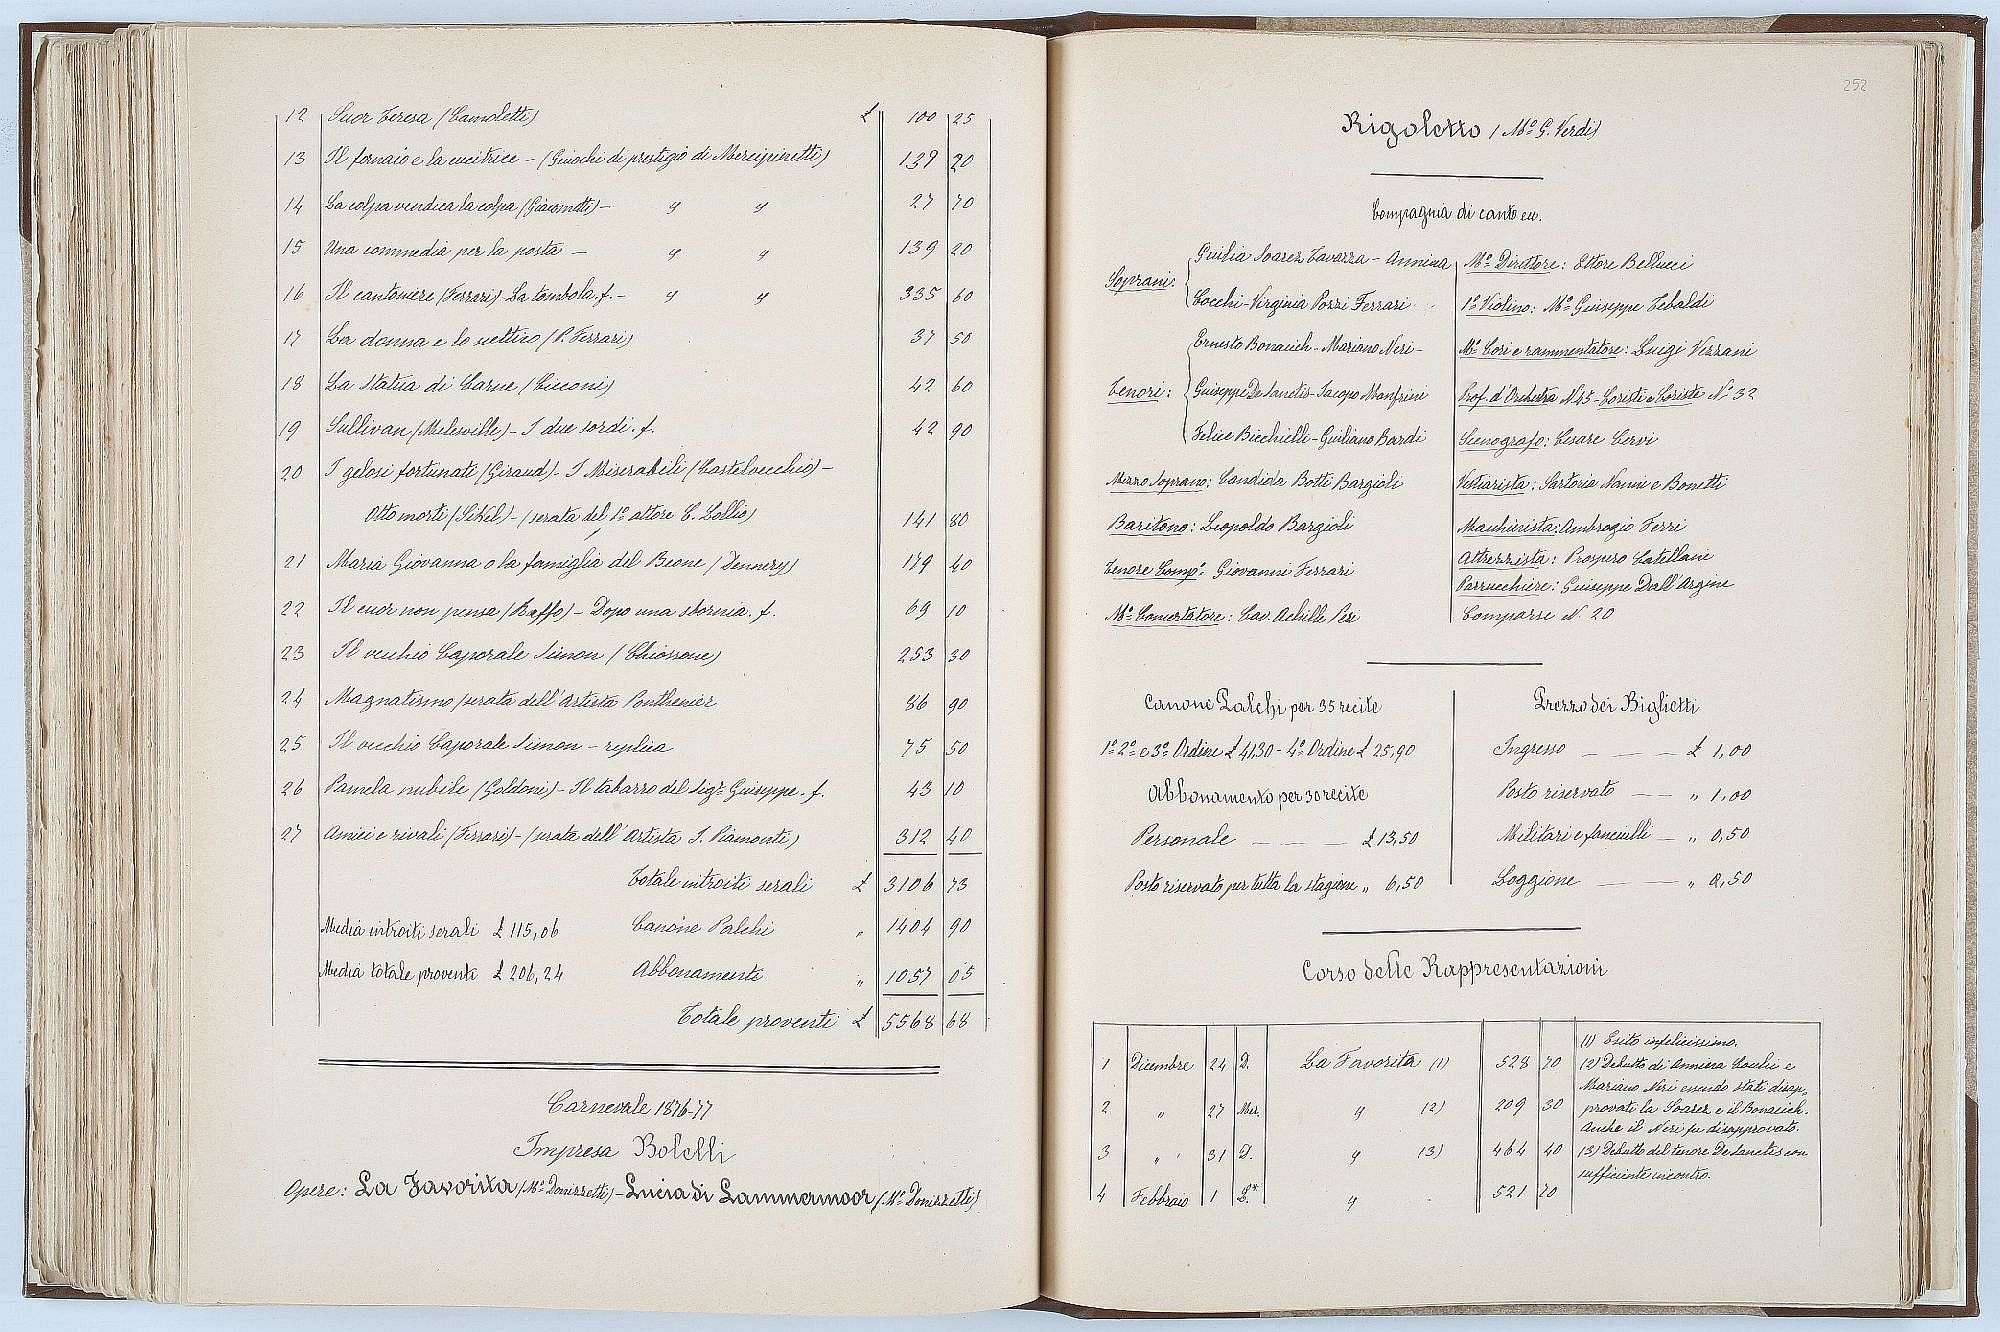 12 Suor Teresa (Camoletti) £ 100 25
13 Il fornaio e la cucitrice - (Giuochi di prestigio di Mercipinetti) 139 20
14 La colpa vendica la colpa (Giacometti) - " " 27 70
15 Una commedia per la posta - " " 139 20
16 Il cantoniere (Ferrari) - La tombola. f. - " " 335 60
17 La donna e lo scettico (P. Ferrari) 37 50
18 La Statua di Carne (Cicconi) 42 60
19 Sullivan (Melesville) - I due sordi. f. 42 90
20 I gelosi fortunati (Giraud) - I Miserabili (Castelvecchio) -
Otto morti (Sihel) - (serata del 1º attore C. Lollio) 141 80
21 Maria Giovanna o la famiglia del Beone (Dennery) 119 40
22 Il cuor non pensa (Raffo) - Dopo una sbornia. f. 69 10
23 Il vecchio Caporale Simon (Chiossone) 253 30
24 Magnatismo (serata dell'Artista Ponthenier 86 90
25 Il vecchio Caporale Simon - replica 75 50
26 Pamela nubile (Goldoni) - Il tabarro del Sigr. Giuseppe. f. 43 10
27 Amici e rivali (Ferrari) - (serata dell'Artista S. Piamonti) 312 40
Totale introiti serali £ 3106 73
Media introiti serali £ 115,06 Canone Palchi " 1404 90
Media totale proventi £ 206,24 Abbonamenti " 1057 05
Totale proventi £ 5568 68
Carnevale 1876-77
Impresa Bolelli
Opere: La Favorita (Mº Donizzetti) - Lucia di Lammermoor (Mº Donizzetti)
252
Rigoletto (Mº G. Verdi)
Compagnia di canto ecc.
Soprani: Giulia Soarez Tavazza - Annina
Cocchi - Virginia Pozzi Ferrari
Tenori: Ernesto Bonacich - Mariano Neri -
Giuseppe De Sanctis - Jacopo Manfrini
Felice Bicchielli - Giuliano Bardi
Mezzo Soprano: Candida Botti Bargioli
Baritono: Leopoldo Bargioli
Tenore Compº: Giovanni Ferrari
Mº Concertatore: Cav. Achille Peri
Mº Direttore: Ettore Bellucci
1º Violino: Mº Giuseppe Tebaldi
Mº Cori e rammentatore: Luigi Vezzani
Prof. d'Orchestra N. 45 - Coristi e Coriste Nº 32
Scenografo: Cesare Cervi
Vestiarista: Sartoria Nanni e Bonetti
Macchinista: Ambrogio Ferri
Attrezzista: Prospero Catellani
Parrucchiere: Giuseppe Dall'Argine
Comparse N. 20
Canone Palchi per 35 recite
1º 2º e 3º Ordine £ 41,30 - 4º Ordine £ 25,90
Abbonamento per 30 recite
Personale - - - £ 13,50
Posto riservato per tutta la stagione " 6,50
Prezzo dei Biglietti
Ingresso - - - £ 1,00
Posto riservato - - " 1,00
Militari e fanciulli - " 0,50
Loggione - - " 0,50
Corso delle Rappresentazioni
1 Dicembre 24 D. La Favorita (1) 528 70
2 " 27 Mer. " (2) 209 30
3 " 31 D. " (3) 464 40
4 Febbraio 1 L.* " 521 70
(1) Esito infelicissimo.
(2) Debutto di Annina Cocchi e
Mariano Neri essendo stati disap-
provati la Soarez e il Bonacich.
Anche il Neri fu disapprovato.
(3) Debutto del tenore De Sanctis con
sufficiente incontro.